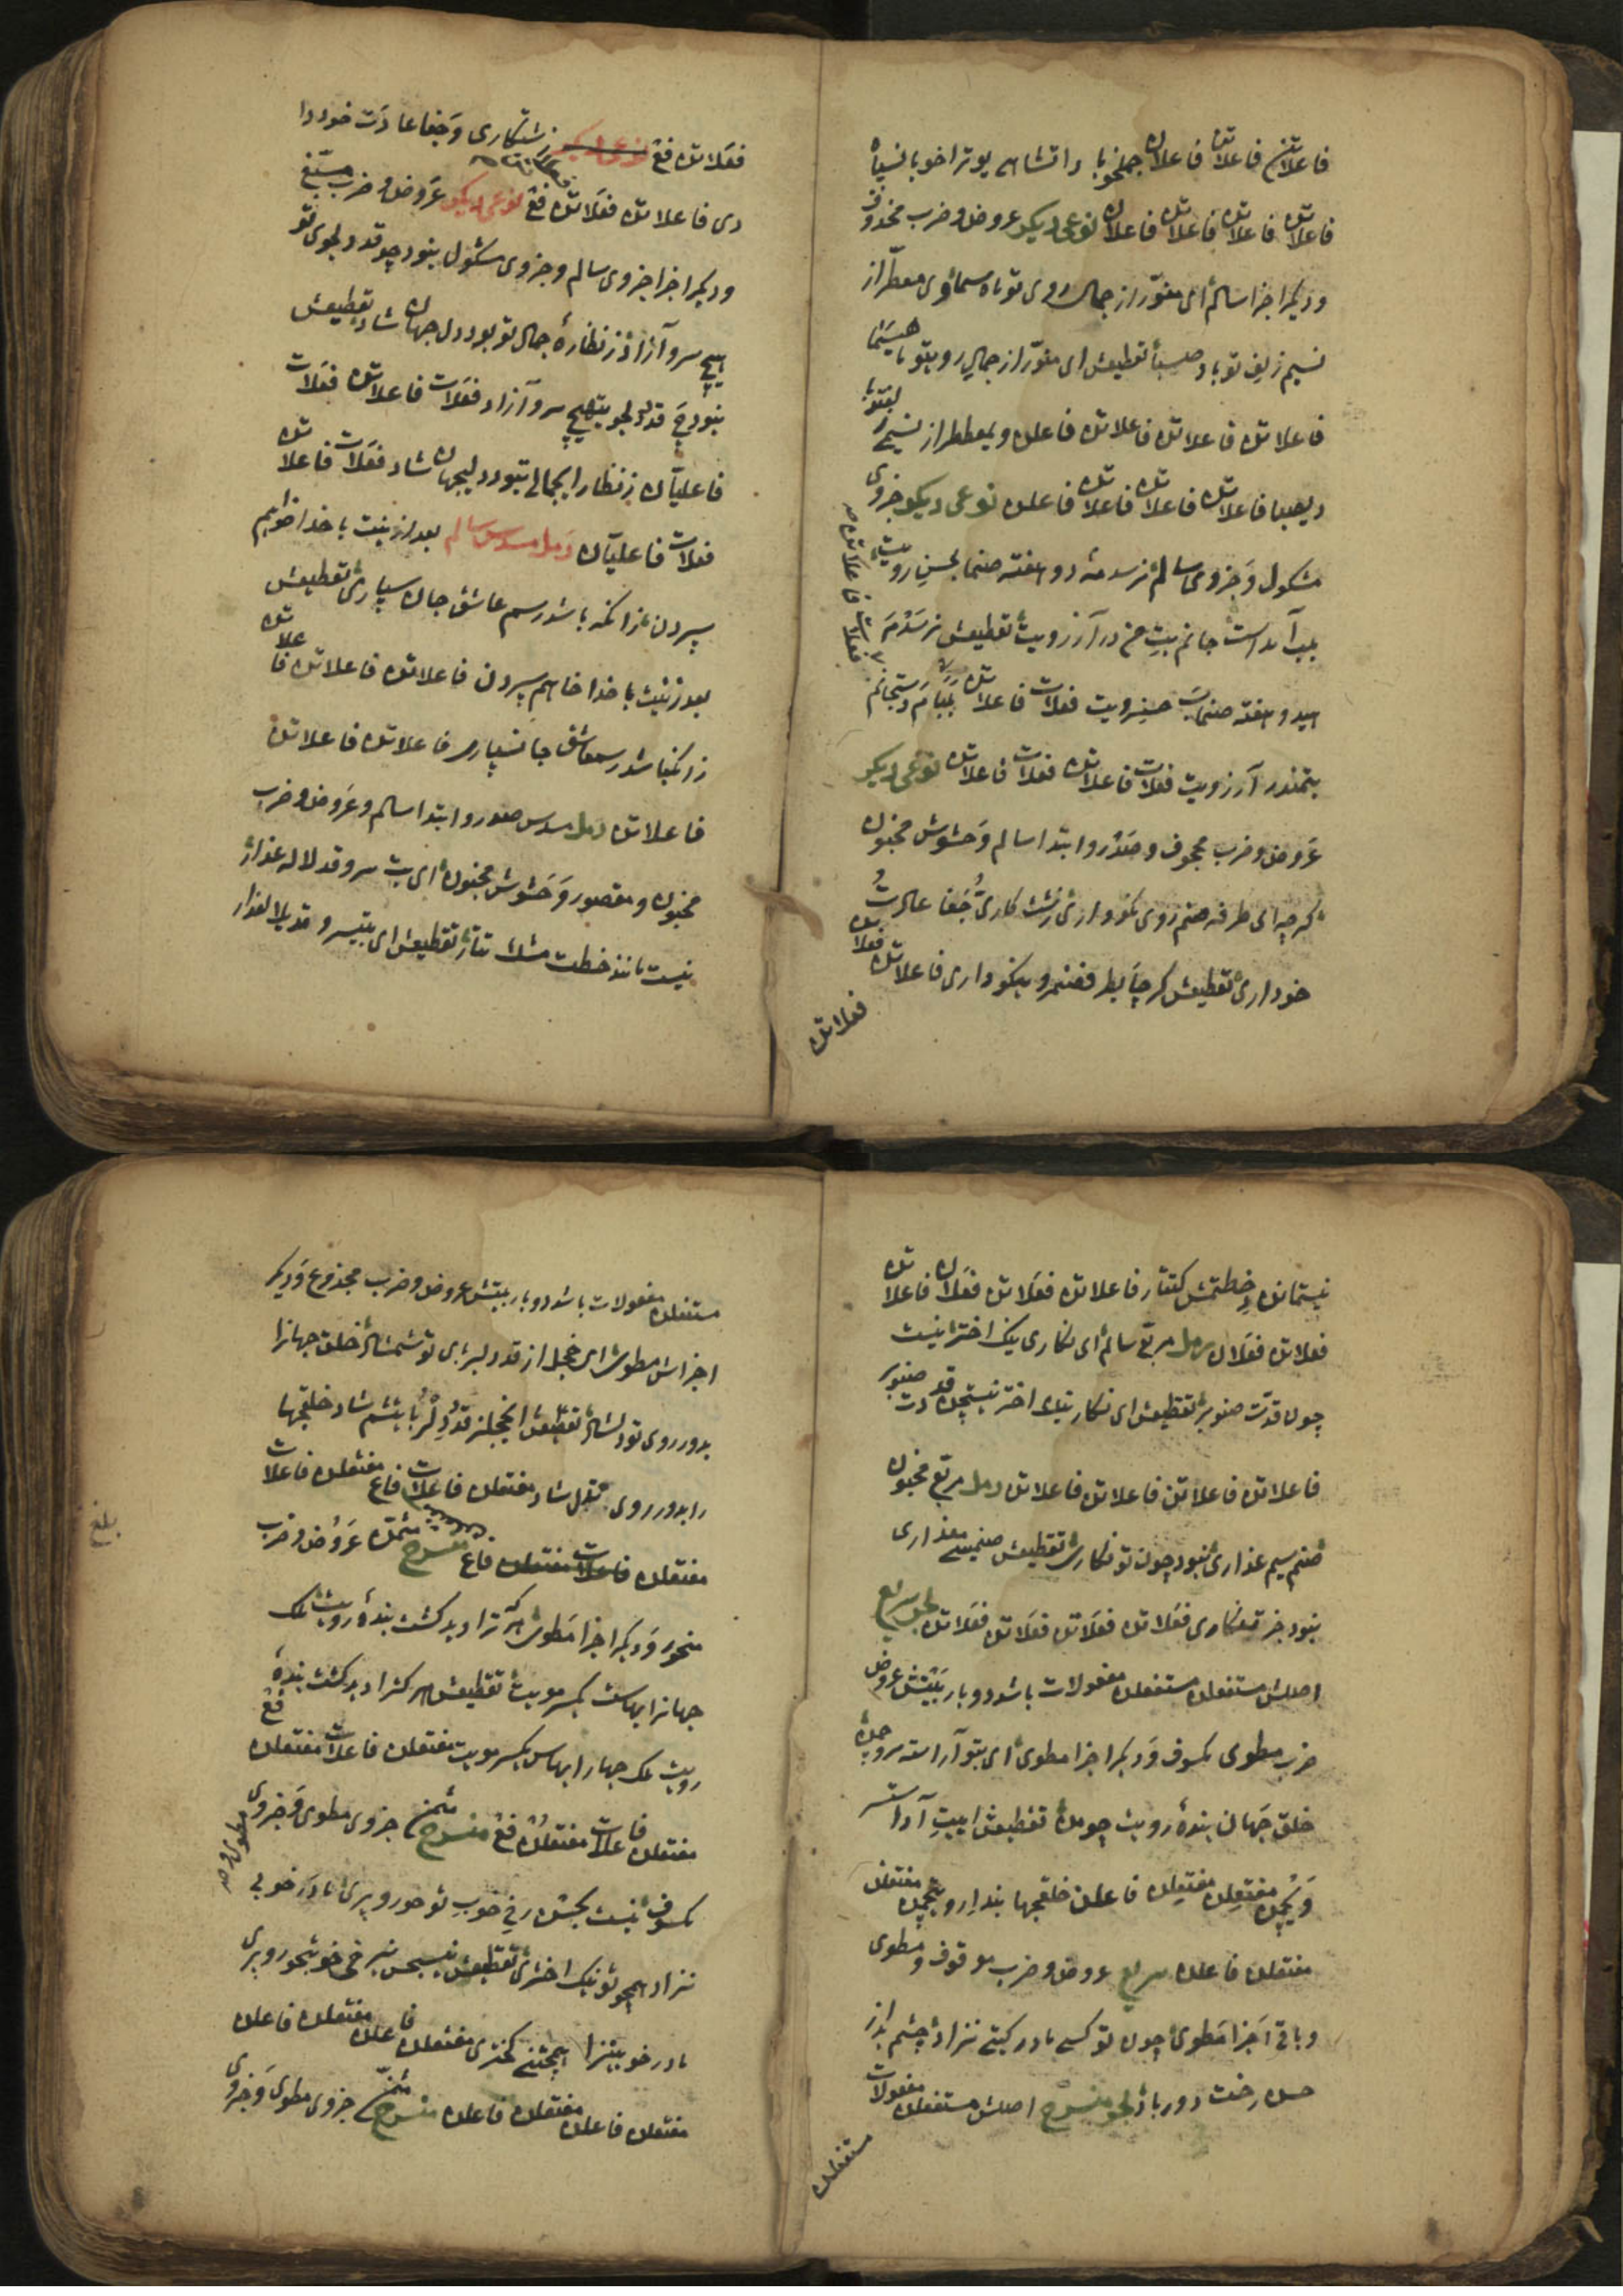 فاعلاتن فاعلاتن فاعلان جملخوبا داتشاهـ یوتراخوبانسپاه
فاعلاتن فاعلاتن فاعلاتن فاعلان نوعی دیکر عروض و ضرب محذوف
و دیکر اجزا سالم ای منور از جمال روی تو ماه سما وی معطر از
نسیم زلف تو باد صبا تقطیعش ای منور از جمال رویتو ماهسما
فاعلاتن فاعلاتن فاعلاتن فاعلن ویمعططر از نسیم
دیصبا فاعلاتن فاعلاتن فاعلاتن فاعلن نوعی دیکر جزوی
مشکول و جزوی سالم نرسد مه دو هفته صنما بحسن رویت
بلب آمد است جانم بت من در آرزویت تقطیعش نرسدم
هیدو هفته صنما بحسنرویت فعلات فاعلاتن بلبامدستجانم
بتمندر آرزویت فعلات فاعلاتن فعلات فاعلاتن نوعی دیکر
عروض و ضرب مجحوف و صدر و ابتدا سالم و حشوش مخبون
کرچه ای طرفه صنم روی نکو داری زشت کاری و جفا عادت
خود داری تقطیعش کرچایطر فصنمرو ینکوداری فاعلاتن فعلاتن
فعلاتن
فعلاتن فع زشتکاری و جفا عادت خوددا
ری فاعلاتن فعلاتن فع نوعی دیکر عروض و ضرب مسبغ
و دیکر اجزا جزوی سالم و جزوی مشکول نبود چو قد دلجوی تو
هیچ سرو آزاد ز نظاره جمال تو بود دل جهان شاد تقطیعش
نبودچ قددلجو یتهیچ سرو آزاد فعلات فاعلاتن فعلات
فاعلیان زنظار ایجمالی تبوددلیجهان شاد فعلات فاعلاتن
فعلات فاعلیان رمل مسدس سالم بعد ازینت با خدا خواهم
سپردن زانکه باشد رسم عاشق جان سپاری تقطیعش
بعدزینت باخدا خاهم سپردن فاعلاتن فاعلاتن فاعلاتن
زانکباشد رسمعاشق جانسپاری فاعلاتن فاعلاتن
فاعلاتن رمل مسدس صدر و ابتدا سالم و عروض و ضرب
مخبون و مقصور و حشوش مخبون ای بت سرو قد لاله عذار
نیست مانند خطت مشک تتار تقطیعش ای بتیسر و قدیلا لعذار
نیستمانن دخطتمش کتتار فاعلاتن فعلاتن فعلان فاعلاتن
فعلاتن فعلان رمل مربع سالم ای نکاری نیک اختر نیست
چون قدت صنوبر تقطیعش ای نکاری نیک اختر نیستچن قد دت صنوبر
فاعلاتن فاعلاتن فاعلاتن فاعلاتن رمل مربع مخبون
صنم سیم عذاری نبود چون تو نکاری تقطیعش صنمیسی معذاری
نبودچن تنکاری فعلاتن فعلاتن فعلاتن فعلاتن بحر سریع
اصلش مستفعلن مستفعلن مفعولات باشد دو بار بیتش عروض
ضرب مطوی مکسوف و دیکر اجزا مطوی ای بتو آراسته سرو چمن
خلق جهان بنده رویت چو من تقطیعش ایبت آراسته
مفتعلن مفتعلن فاعلن خلقجها بندا رو یتچمن مفتعلن
مفتعلن فاعلن سریع عروض و ضرب موقوف و مطوی
و باقی اجزا مطوی چون تو کسی مادر کیتی نزاد چشم بد از
حسن رخت دور باد بحر منسرح اصلش مستفعلن مفعولات
مستفعلن
مستفعلن مفعولات باشد دو بار بیتش عروض و ضرب مجدوع و دیکر
اجزاش مطوی ای خجل از قد دلبربای تو شمشاد خلق جهانرا
بدور روی تو دلشاد تقطیعش ایخجلز قددلربا یتشم شاد خلقجها
رابدور روی تدلشاد مفتعلن فاعلات فاع مفتعلن فاعلات
مفتعلن فاعلات مفتعلن فاع منسرح مثمن عروض و ضرب
منحور و دیکر اجزا مطوی هر که ترا دید کشت بنده رویت ملک
جهانرا بهاست یکسر مویت تقطیعش هرکترا دید کشت بنده
رویت ملک جهار ابهاس یکسر مویت مفتعلن فاعلات مفتعلن فع
مفتعلن فاعلات مفتعلن فع منسرح مثمن جزوی مطوی و جزوی مطوی و
مکسوف نیست بحسن رخ خوب تو حور و پری مادر خوبی
نزاد همچو تو نیک اختری تقطیعش نیسبحس نیرخی خوبتحورو پری
مادر خوبینزا همچتنی کختری مفتعلن فاعلن مفتعلن فاعلن
مفتعلن فاعلن مفتعلن فاعلن منسرح مثمن جزوی مطوی و جزوی
بلغ